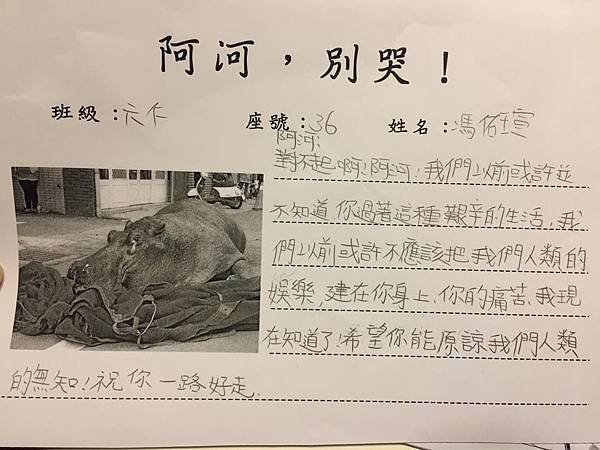 阿河，別哭！
班級：六仁 座號：36 姓名：馮佑瑄
阿河：
對不起啊！阿河！我們以前或許並
不知道你過著這種艱辛的生活，我
們以前或許不應該把我們人類的
娛樂，建在你身上，你的痛苦，我現
在知道了！希望你能原諒我們人類
的無知！祝你一路好走.